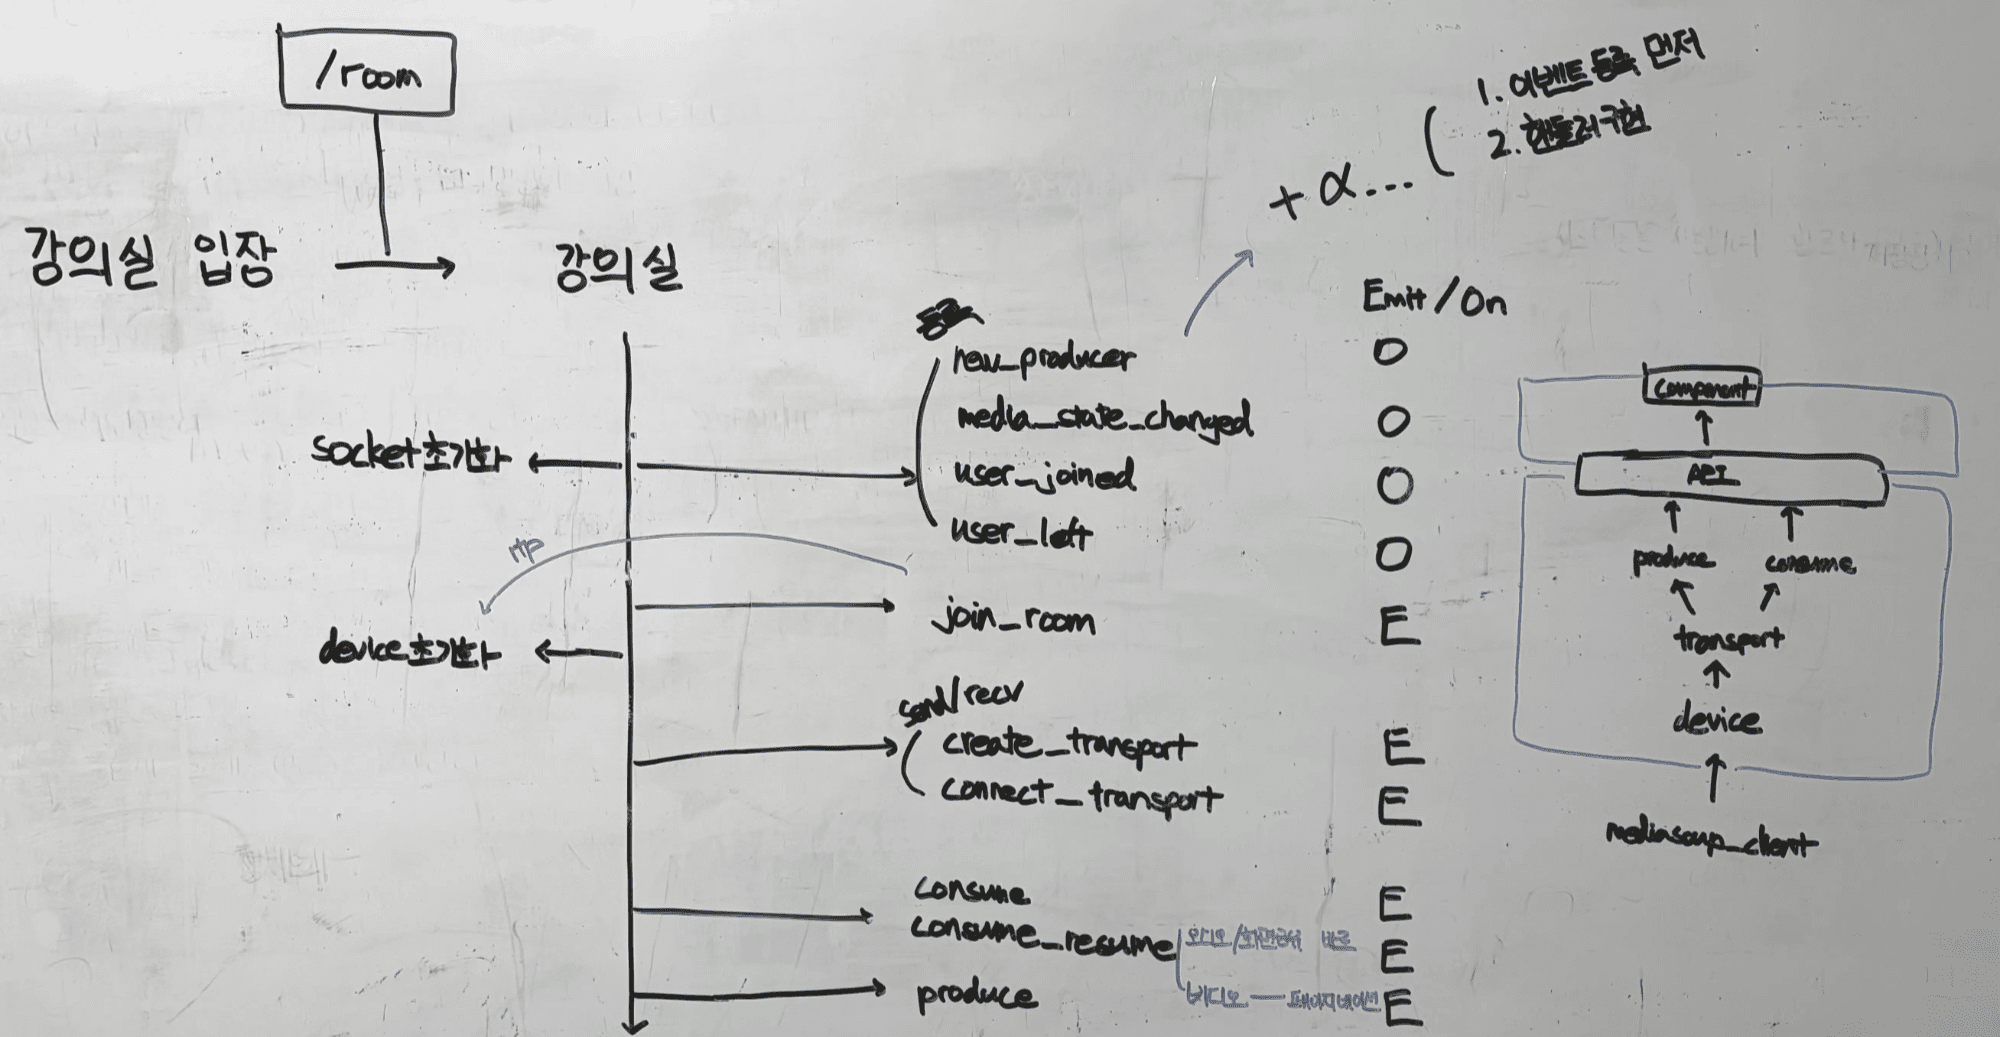 /room
강의실 입장
강의실
+ α....
1. 이벤트 등록 먼저
2. 핸들러 구현
Emit / On
등록
new_producer O
media_state_changed O
user_joined O
user_left O
socket초기화
rtp
join_room E
device초기화
send/recv
create_transport E
connect_transport E
consume E
consume_resume 오디오/화면공유 바로 E
비디오 — 페이지네이션
produce E
component
API
produce consume
transport
device
mediasoup_client